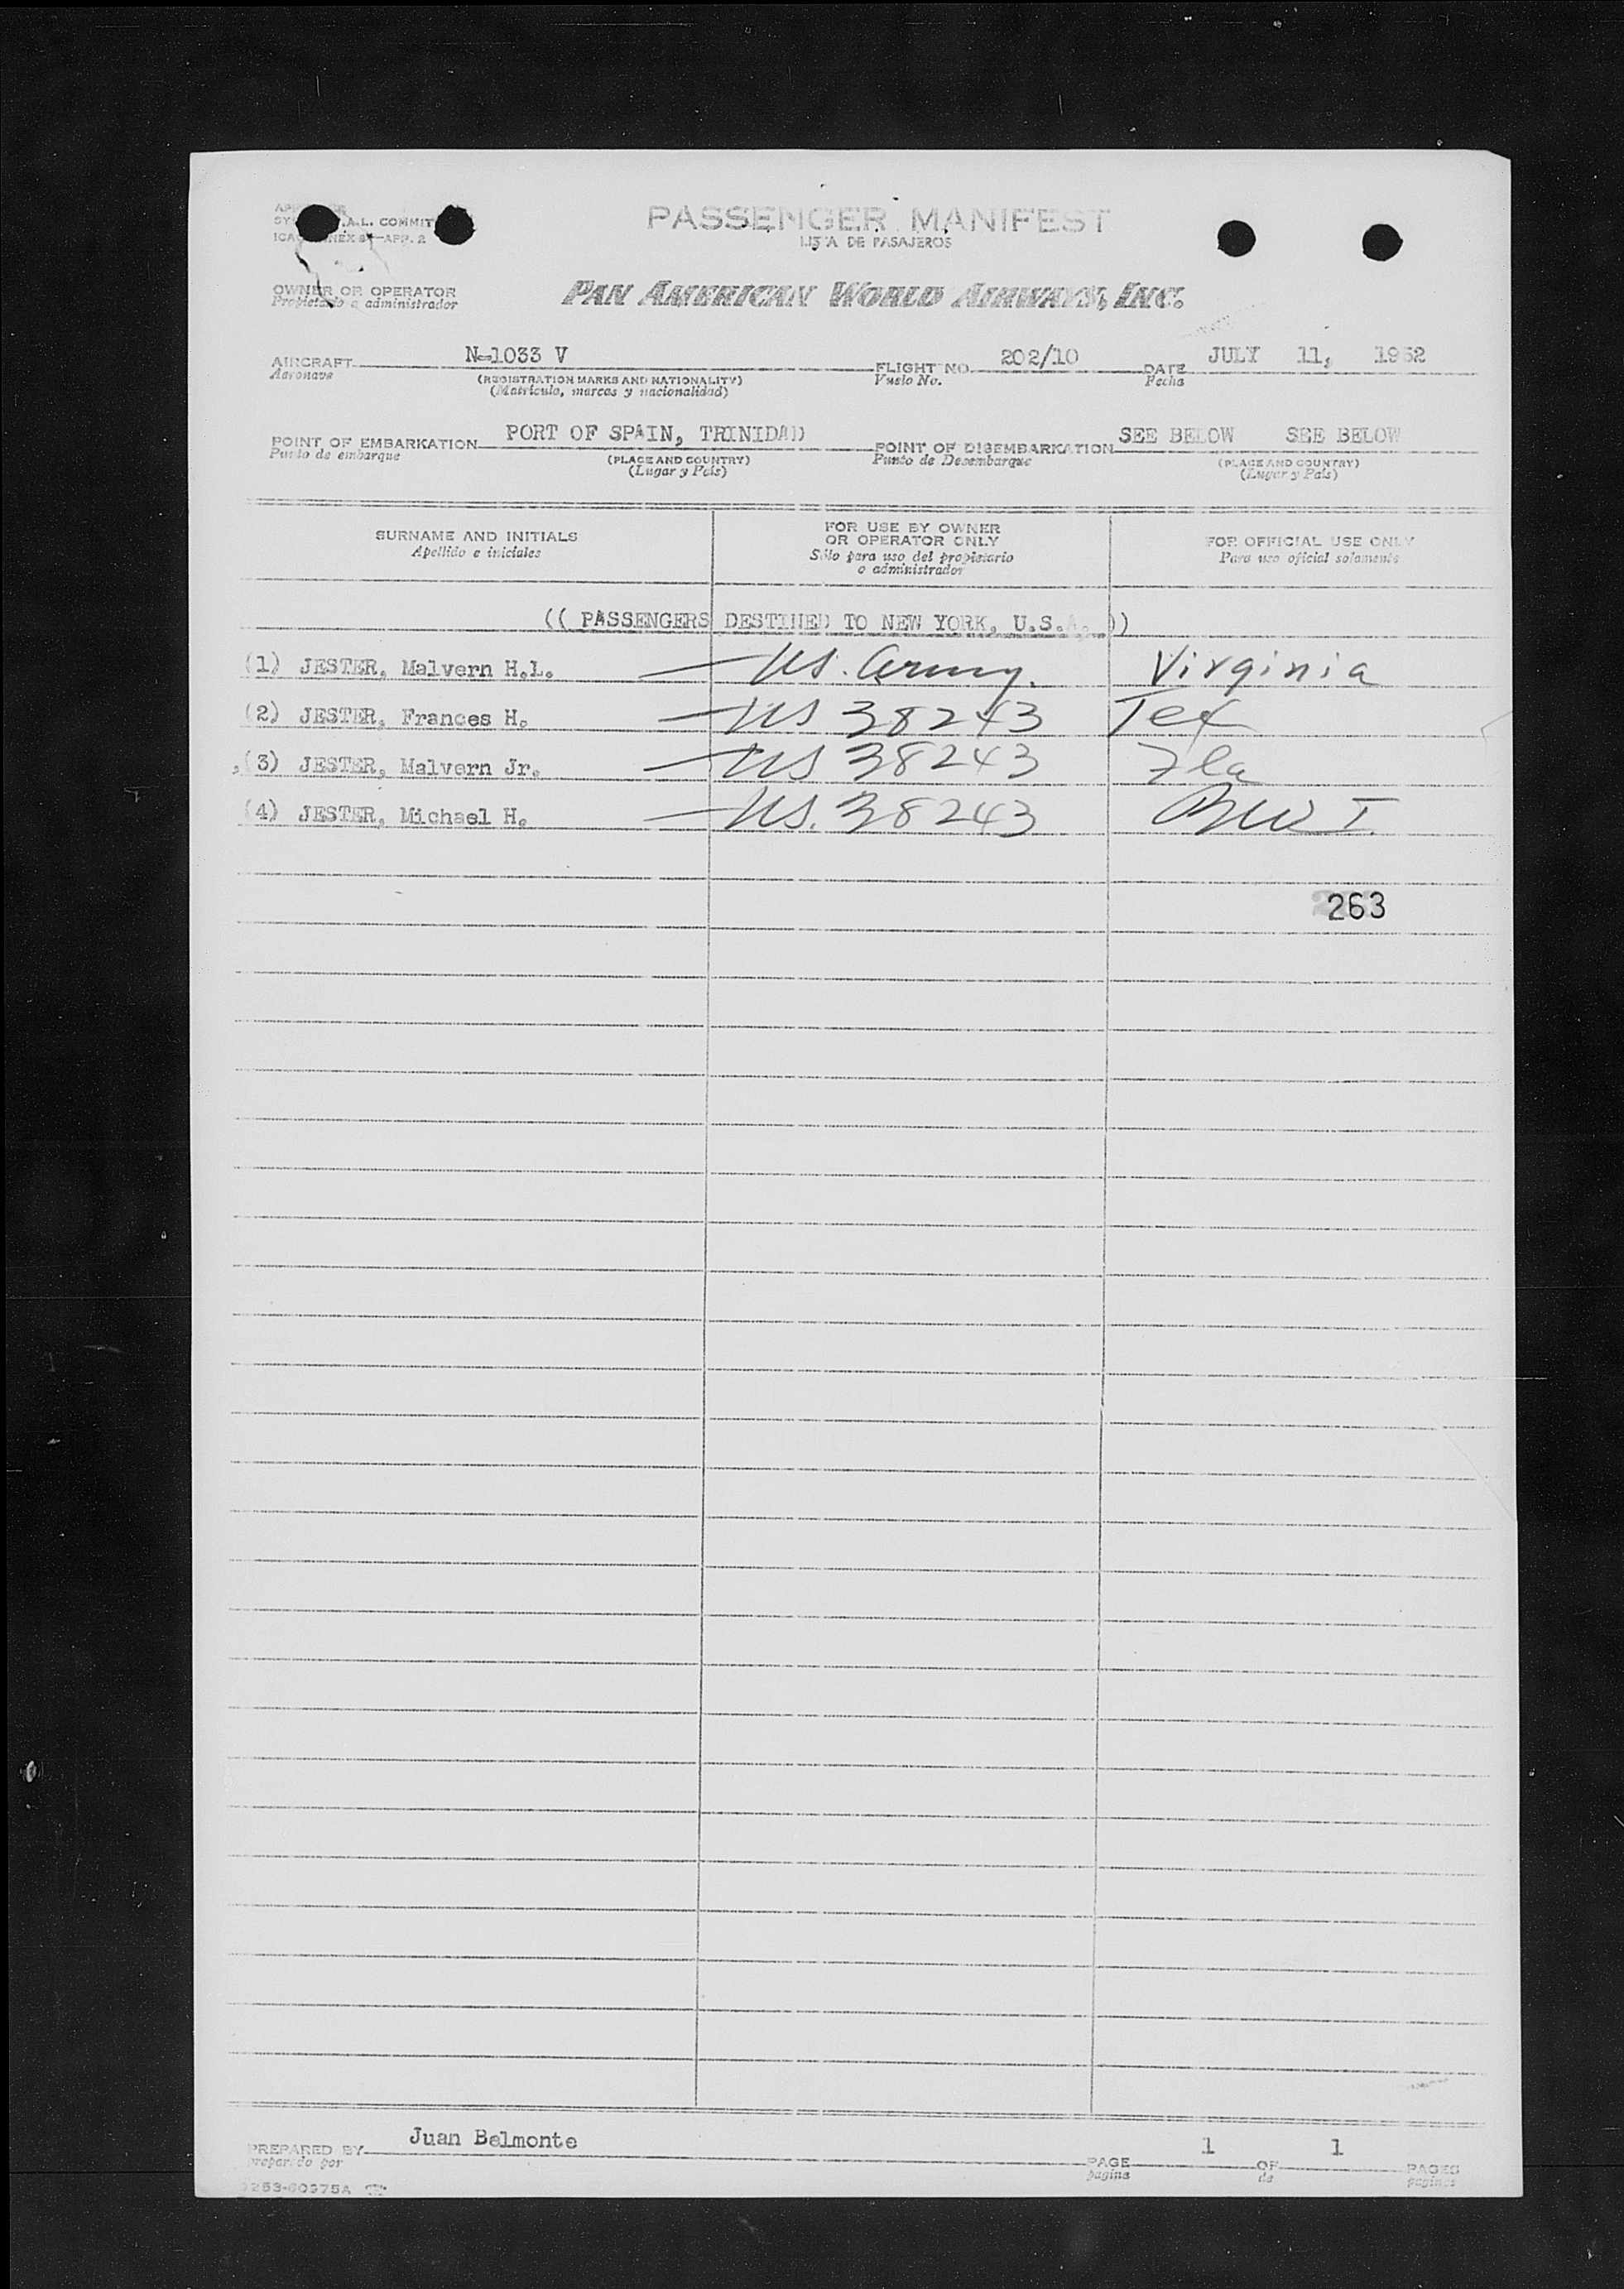 PASSENGER MANIFEST
LISTA DE PASAJEROS
A.L. COMMIT
APP. 2
OWNER OR OPERATOR
Propietario o administrador
PAN AMERICAN WORLD AIRWAYS, INC.
AIRCRAFT N-1033 V FLIGHT NO. 202/10 DATE JULY 11, 1952
Aeronave (REGISTRATION MARKS AND NATIONALITY) Vuelo No. Fecha
(Matricula, marcas y nacionalidad)
POINT OF EMBARKATION PORT OF SPAIN, TRINIDAD POINT OF DISEMBARKATION SEE BELOW SEE BELOW
Punto de embarque (PLACE AND COUNTRY) Punto de Desembarque (PLACE AND COUNTRY)
(Lugar y País) (Lugar y País)
SURNAME AND INITIALS
Apellido e iniciales
FOR USE BY OWNER
OR OPERATOR ONLY
Sólo para uso del propietario
o administrador
FOR OFFICIAL USE ONLY
Para uso oficial solamente
(( PASSENGERS DESTINED TO NEW YORK, U.S.A. ))
(1) JESTER, Malvern H.L. — US. Army. Virginia
(2) JESTER, Frances H. — US 38243 Tex
(3) JESTER, Malvern Jr. — US 38243 Fla
(4) JESTER, Michael H. — US. 38243 BWI.
263
PREPARED BY Juan Belmonte PAGE 1 OF 1 PAGES
preparado por pagina de paginas